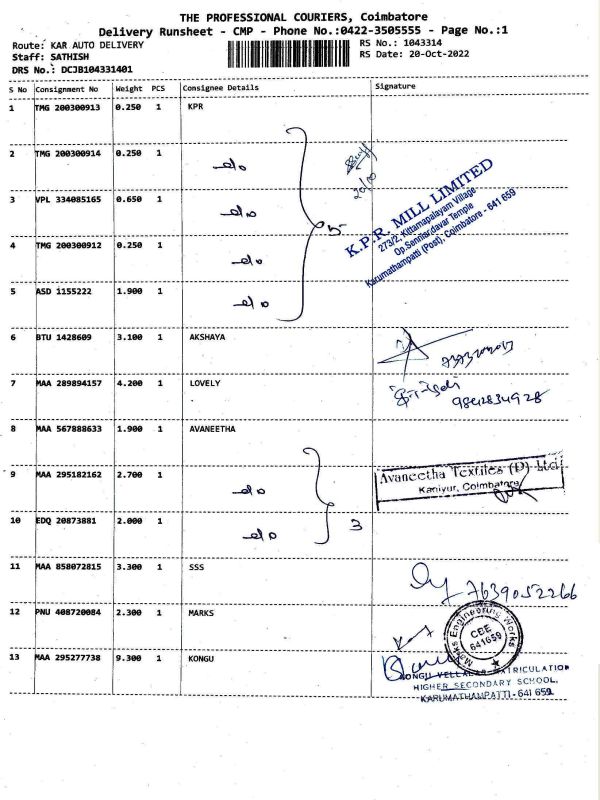 THE PROFESSIONAL COURIERS, Coimbatore
Delivery Runsheet - CMP - Phone No.:0422-3505555 - Page No.:1
Route: KAR AUTO DELIVERY
RS No.: 1043314
Staff: SATHISH
RS Date: 20-Oct-2022
DRS No.: DCJB104331401
S No Consignment No Weight PCS Consignee Details Signature
1 TMG 200300913 0.250 1 KPR
2 TMG 200300914 0.250 1 d/o
20/10
3 VPL 334085165 0.650 1 d/o
5
K.P.R. MILL LIMITED
273/2, Kittampalayam Village
Op.Senniandavar Temple
Karumathampatti (Post), Coimbatore - 641 659
4 TMG 200300912 0.250 1 d/o
5 ASD 1155222 1.900 1 d/o
6 BTU 1428609 3.100 1 AKSHAYA
7 MAA 289894157 4.200 1 LOVELY
9842834928
8 MAA 567888633 1.900 1 AVANEETHA
9 MAA 295182162 2.700 1 d/o
Avaneetha Textiles (P) Ltd
Kaniyur, Coimbatore
10 EDQ 20873881 2.000 1 d/o 3
11 MAA 858072815 3.300 1 SSS
7639052266
12 PNU 408720084 2.300 1 MARKS
Marks Engineering Works
CBE
641659
13 MAA 295277738 9.300 1 KONGU
KONGU VELLALAR MATRICULATION
HIGHER SECONDARY SCHOOL,
KARUMATHAMPATTI - 641 659